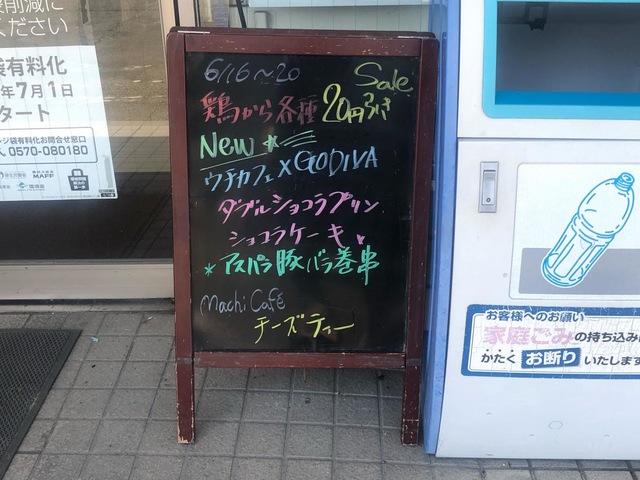 袋削減に
ください
袋有料化
年7月1日
タート
ジ袋有料化お問合せ窓口
0570-080180
MAFF
6/16～20
Sale
鶏から各種 20円引き
New
ウチカフェ×GODIVA
ダブルショコラプリン
ショコラケーキ
*アスパラ豚バラ巻串
Machi Café
チーズティー
お客様へのお願い
家庭ごみの持ち込みは
かたくお断りいたします